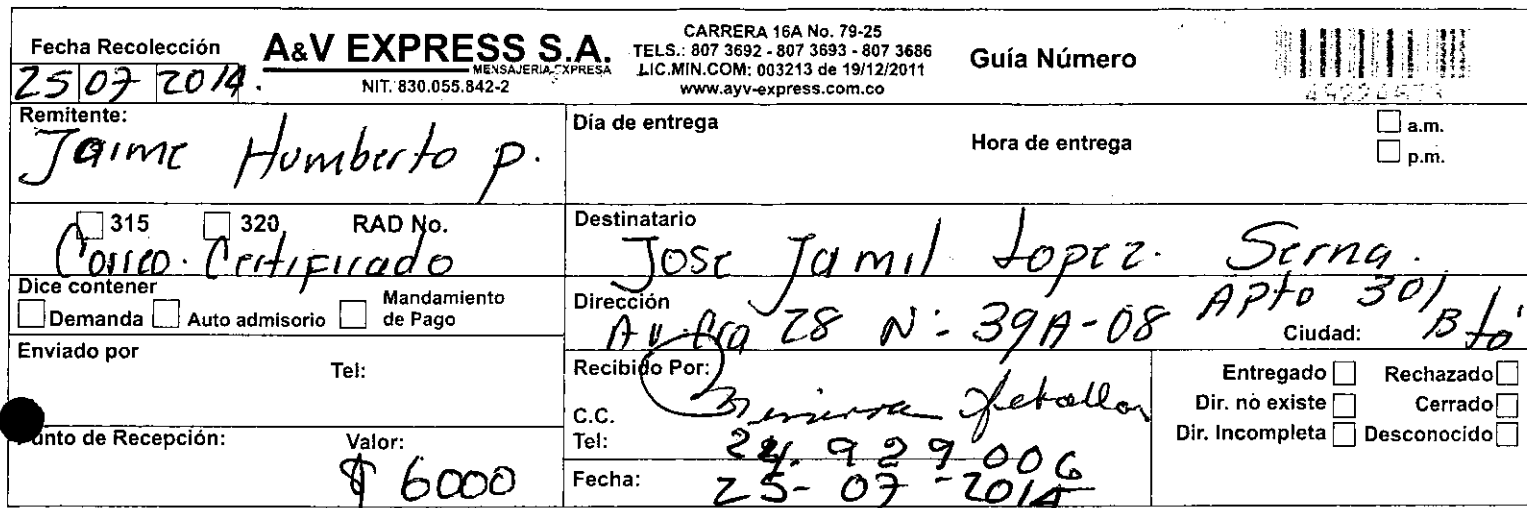 Fecha Recolección
25 07 2014.
A&V EXPRESS S.A.
MENSAJERIA EXPRESA
NIT. 830.055.842-2
CARRERA 16A No. 79-25
TELS.: 807 3692 - 807 3693 - 807 3686
LIC.MIN.COM: 003213 de 19/12/2011
www.ayv-express.com.co
Guía Número
Remitente:
Jaime Humberto p.
Día de entrega
Hora de entrega
a.m.
p.m.
315 320 RAD No.
Correo. Certificado
Destinatario
Jose Jamil Lopez. Serna.
Dice contener
Demanda Auto admisorio Mandamiento de Pago
Dirección
Av. Cra 28 N:- 39A-08 Apto 301
Ciudad: Bta
Enviado por
Tel:
Recibido Por:
C.C.
Tel: 24.929.006
Fecha: 25-07-2014
Entregado Rechazado
Dir. no existe Cerrado
Dir. Incompleta Desconocido
Punto de Recepción:
Valor:
$ 6000